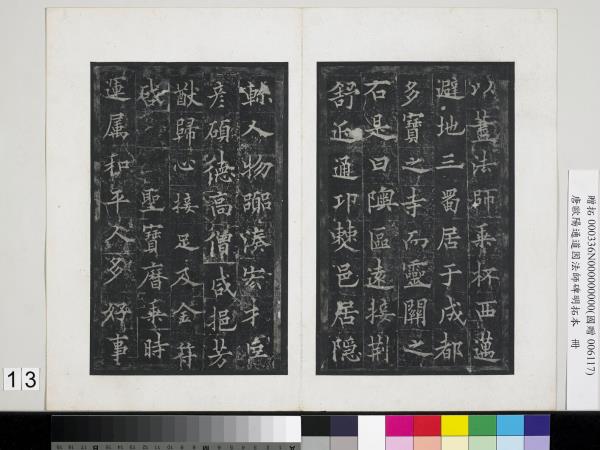 以蓋法師乘杯西邁
避地三蜀居于成都
多寶之寺而靈關之
石是曰隩區遠接荆
舒近通卭僰邑居隱
軫人物囂湊宏才
彦碩德高僧咸挹芳
猷歸心接足及金符
啟聖寶曆乘時
運属和平人多好事
贈拓 000336N000000000(國贈 006117)
唐歐陽通道因法師碑明拓本 冊
13